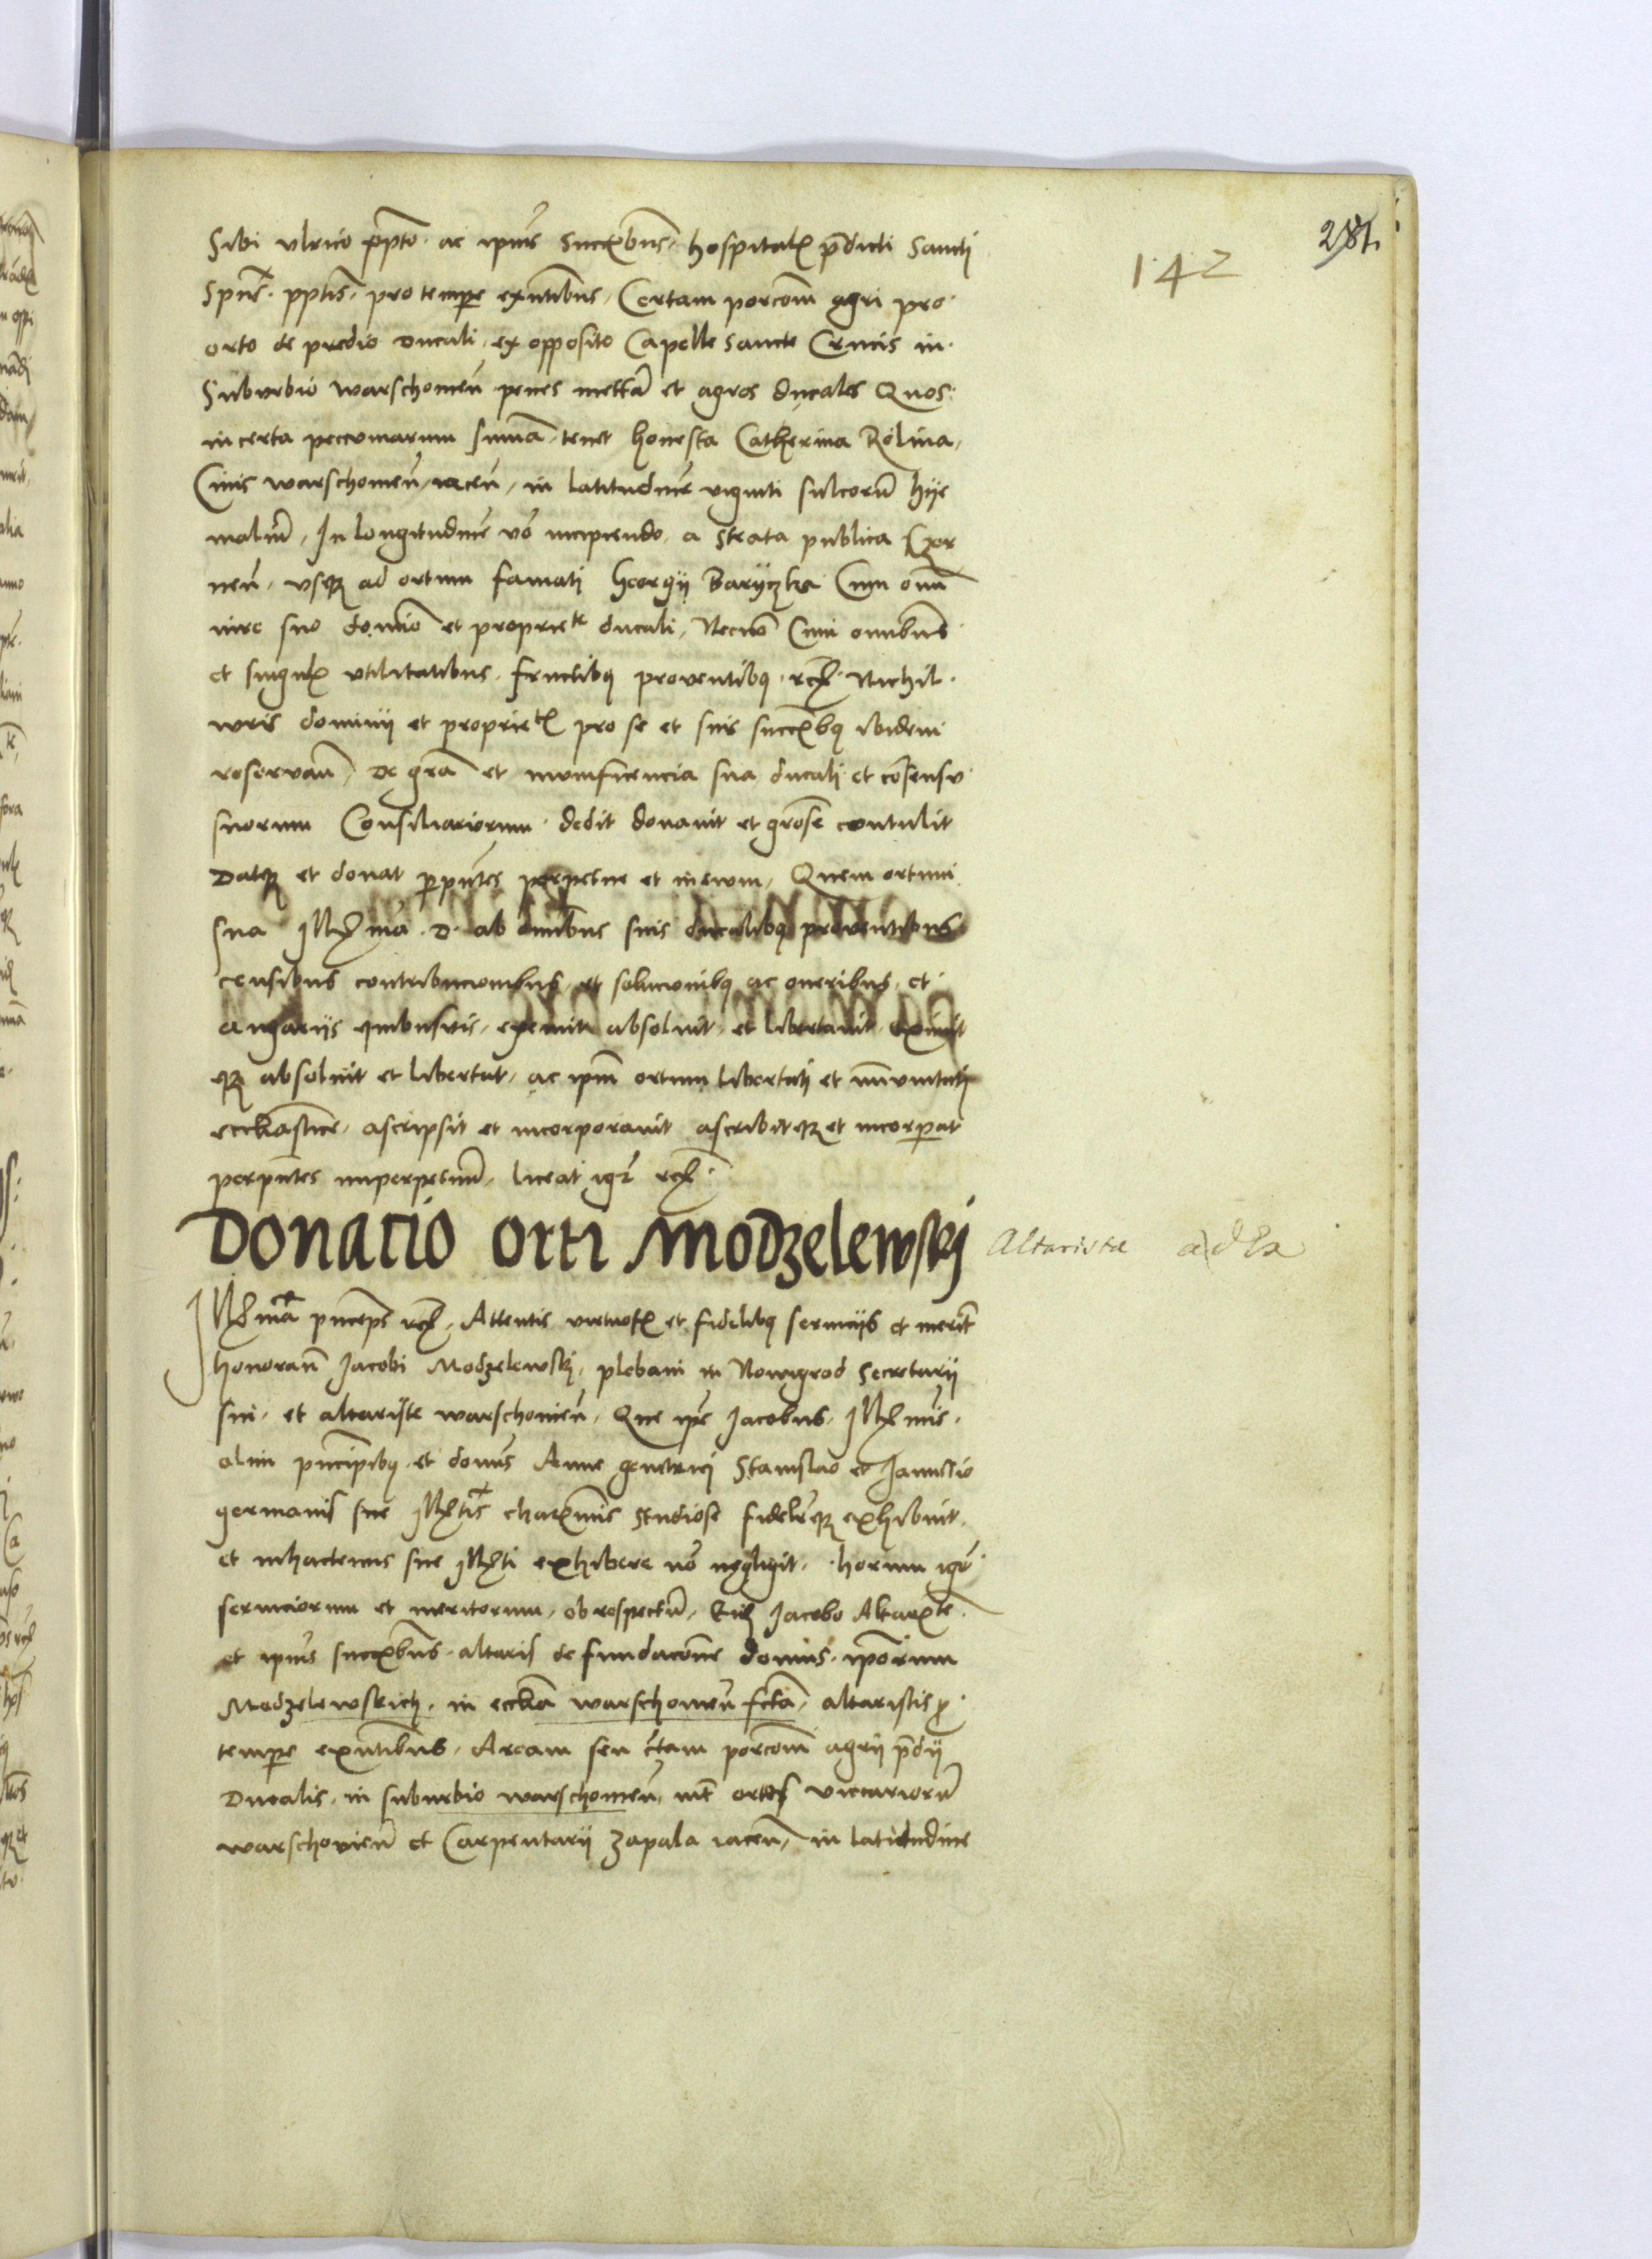 142
281.
Sibi Ulrico ppto ac ipius Succribus hospitalis pdicti Sancti
Spus pptis pro tempe exntibus Certam porcom agri pro
orto de predio Ducali ex opposito Capelle Sancte Crucis in
Suburbio Warschouien penes mettam et agros ducales Quos
in certa peccuniarum summa tenet honesta Catherina Rolina
Ciuis warschouien iacen in latitudine viginti sulcorum hye
malium In longitudine vo incipiendo a strata publica Czer
nen usque ad ortum famati Georgii Baryczka Cum omni
iure suo dominio et proprie te ducali Necno Cum omnibus
et singulis utilitatibus fructibus proventibus rcz Nichil
iuris dominij et proprietis pro se et suis succribus ibidem
reservan De gra et munificencia sua ducali et consensu
suorum Consiliariorum dedit donauit et grose contulit
Datque et donat p pntes perpetue et in ewum Quem ortum
sua Illma D ab omnibus suis ducalibus proventibus
censibus contribucionibus et solucionibus ac oneribus et
angarijs quibusuis exemit absoluit et libertauit eximit
que absoluit et libertat ac ipm ortum libertati et immunitati
ecclastice ascripsit et incorporauit ascribitque et incorpat
per pntes imperpetuum liceat igr rcz
Donacio orti Modzelewski Altarista
Illma pnceps rcz Attentis virtuos et fidelibus seruicijs et merit
honoran Jacobi Modzelewski plebani in Nowigrod Secretarij
sui et altariste warschouien Que ipe Jacobus Illmis
olim pncipibus et domus Anne genetrici Stanislao et Janussio
germanis sue Illtis charmis studiose fideliterque exhibuit
et inhactenus sue Illti exhibere no negligit horum igr
seruiciorum et meritorum ob respectum Eid Jacobo Altariste
et ipius succribus altaris de fundacone domus iporum
Modzelewskich in eccla warschouien fcta altaristis p
tempe exntibus Aream seu ctam porcom agri pdij
Ducalis in suburbio warschouien int ortos viccariorum
warschouien et Carpentarij Zapala iacen in latitudine